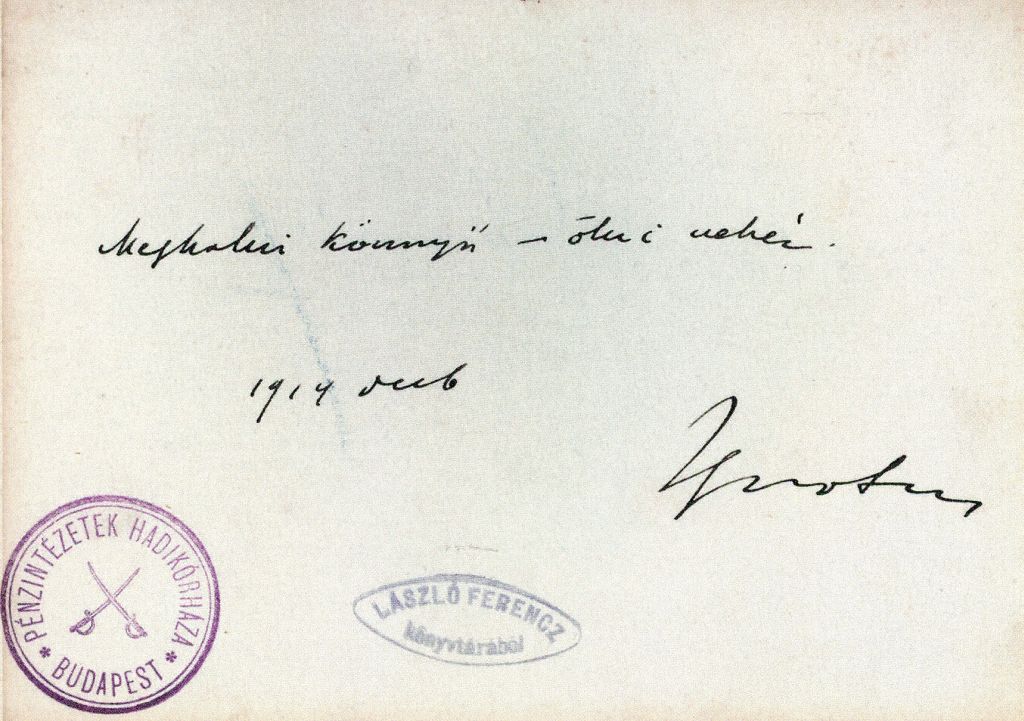 Meghalni könnyű – ölni nehéz.
1914 decb
Ignotus
* PÉNZINTÉZETEK HADIKÓRHÁZA * BUDAPEST
LÁSZLÓ FERENCZ
könyvtárából